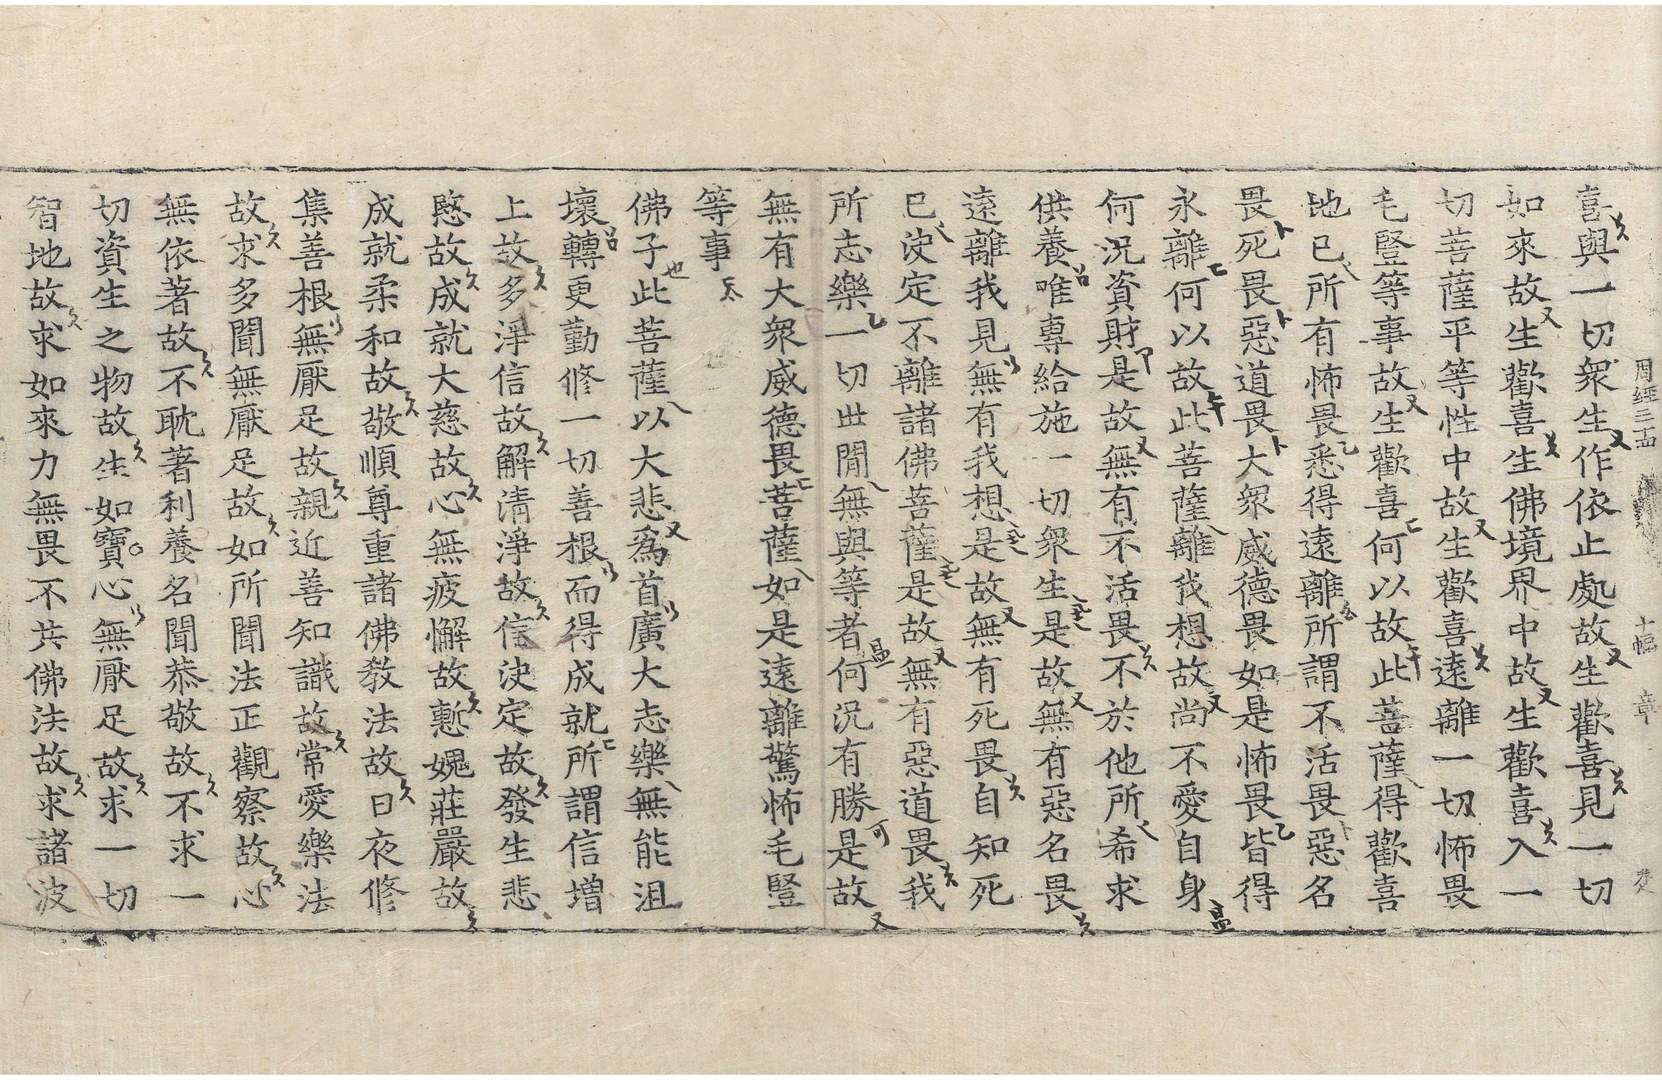 周經三十四 十幅 章
喜與一切衆生作依止處故生歡喜見一切
如來故生歡喜生佛境界中故生歡喜入一
切菩薩平等性中故生歡喜遠離一切怖畏
毛豎等事故生歡喜何以故此菩薩得歡喜
地已所有怖畏悉得遠離所謂不活畏惡名
畏死畏惡道畏大衆威德畏如是怖畏皆得
永離何以故此菩薩離我想故尚不愛自身
何況資財是故無有不活畏不於他所希求
供養唯專給施一切衆生是故無有惡名畏
遠離我見無有我想是故無有死畏自知死
已決定不離諸佛菩薩是故無有惡道畏我
所志樂一切世閒無與等者何況有勝是故
無有大衆威德畏菩薩如是遠離驚怖毛豎
等事
佛子此菩薩以大悲爲首廣大志樂無能沮
壞轉更勤修一切善根而得成就所謂信增
上故多淨信故解清淨故信決定故發生悲
愍故成就大慈故心無疲懈故慙愧莊嚴故
成就柔和故敬順尊重諸佛教法故日夜修
集善根無厭足故親近善知識故常愛樂法
故求多聞無厭足故如所聞法正觀察故心
無依著故不耽著利養名聞恭敬故不求一
切資生之物故生如寶心無厭足故求一切
智地故求如來力無畏不共佛法故求諸波